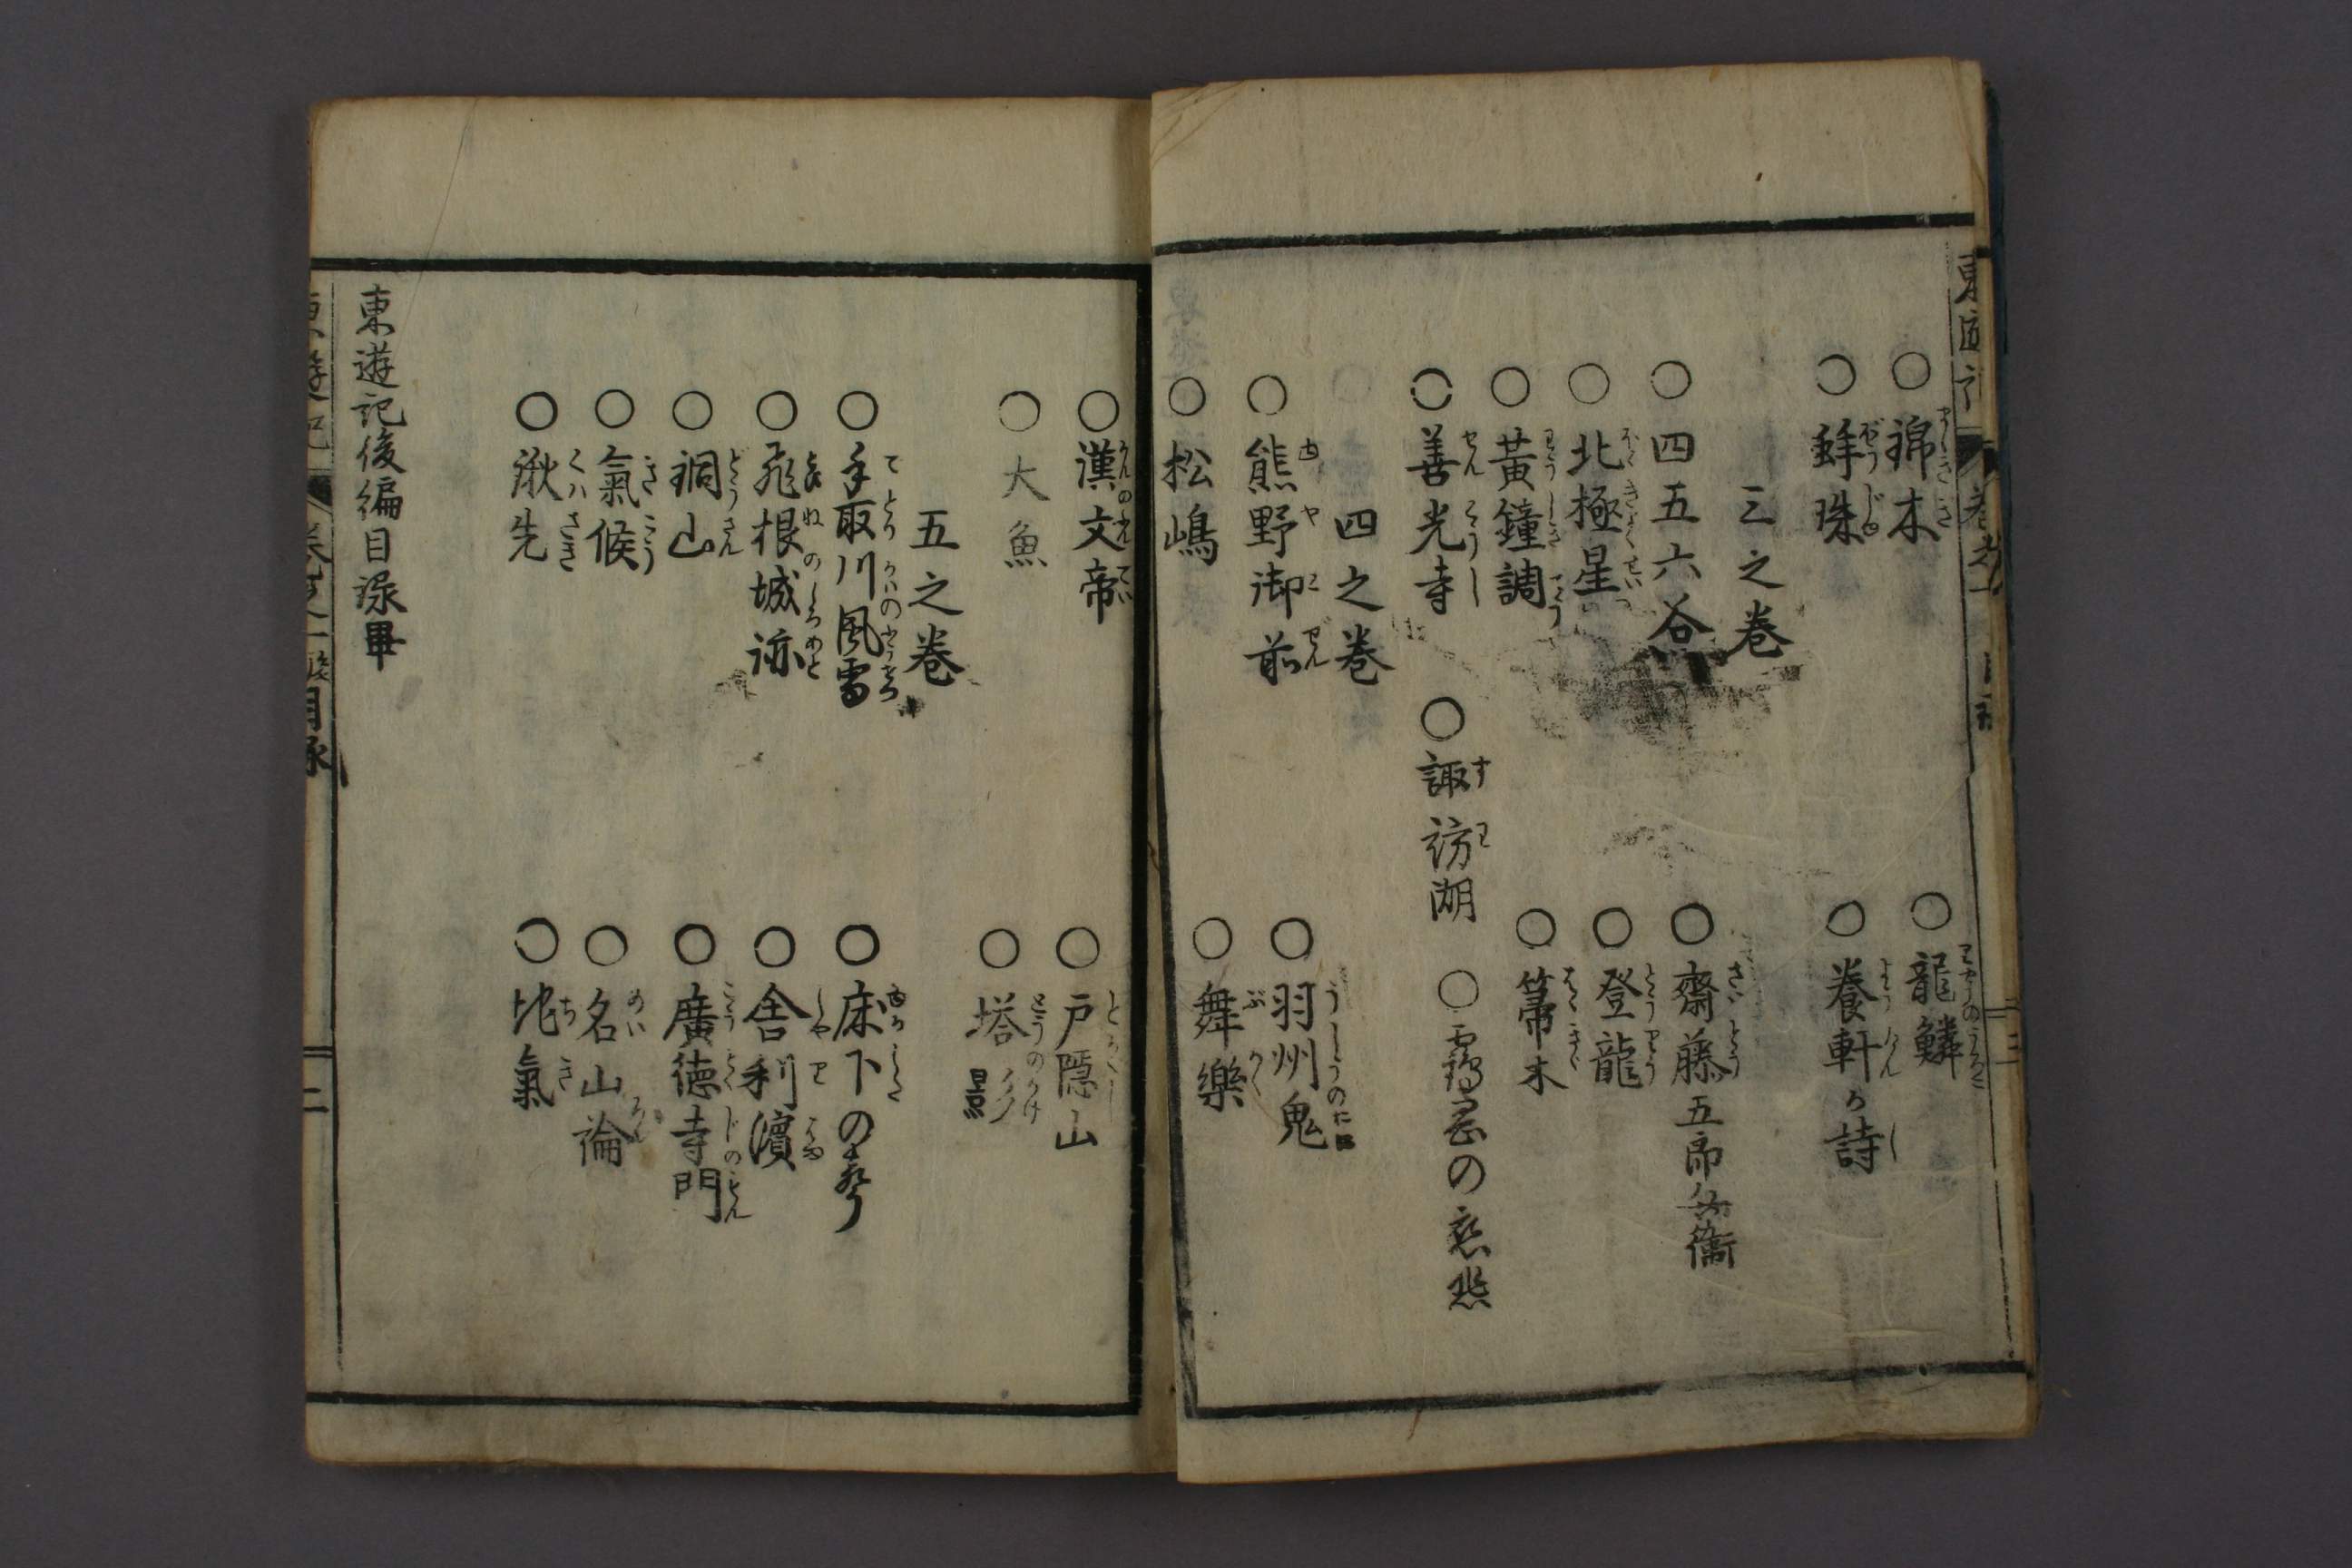 ○錦木 ○龍鱗
○蚌珠 ○養軒が詩
三之巻
○四五六谷 ○齋藤五郎兵衞
○北極星 ○登龍
○黃鐘調 ○箒木
○善光寺 ○諏訪湖 ○靏
四之巻
○熊野御前 ○羽州鬼
○松嶋 ○舞樂
○漢文帝 ○戸隱山
○大魚 ○塔影
五之巻
○手取川風雪 ○床下の聲
○飛根城跡 ○舎利濱
○銅山 ○廣德寺門
○氣候 ○名山論
○湫先 ○地氣
東遊記後編目录畢
東遊記 巻之一 後 目录 二